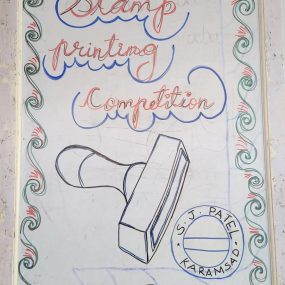 Stamp
printing
Competition
S. J. PATEL
KARAMSAD